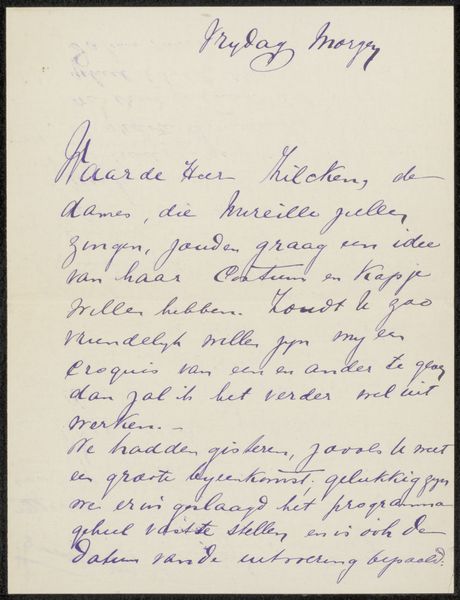 Vrydag Morgen
Waarde Heer Zilcken, de
dames, die Mireille zullen
zingen, zouden graag een idee
van haar Costuum en Kapje
willen hebben. Zoudt U zoo
vriendelyk willen zyn my een
croquis van een en ander te geven
dan zal ik het verder wel uit
werken. _
We hadden gisteren, zooals U weet
een groote byeenkomst; gelukkig zyn
we erin geslaagd het programma
geheel vast te stellen, en is ook de
datum van de uitvoering bepaald.